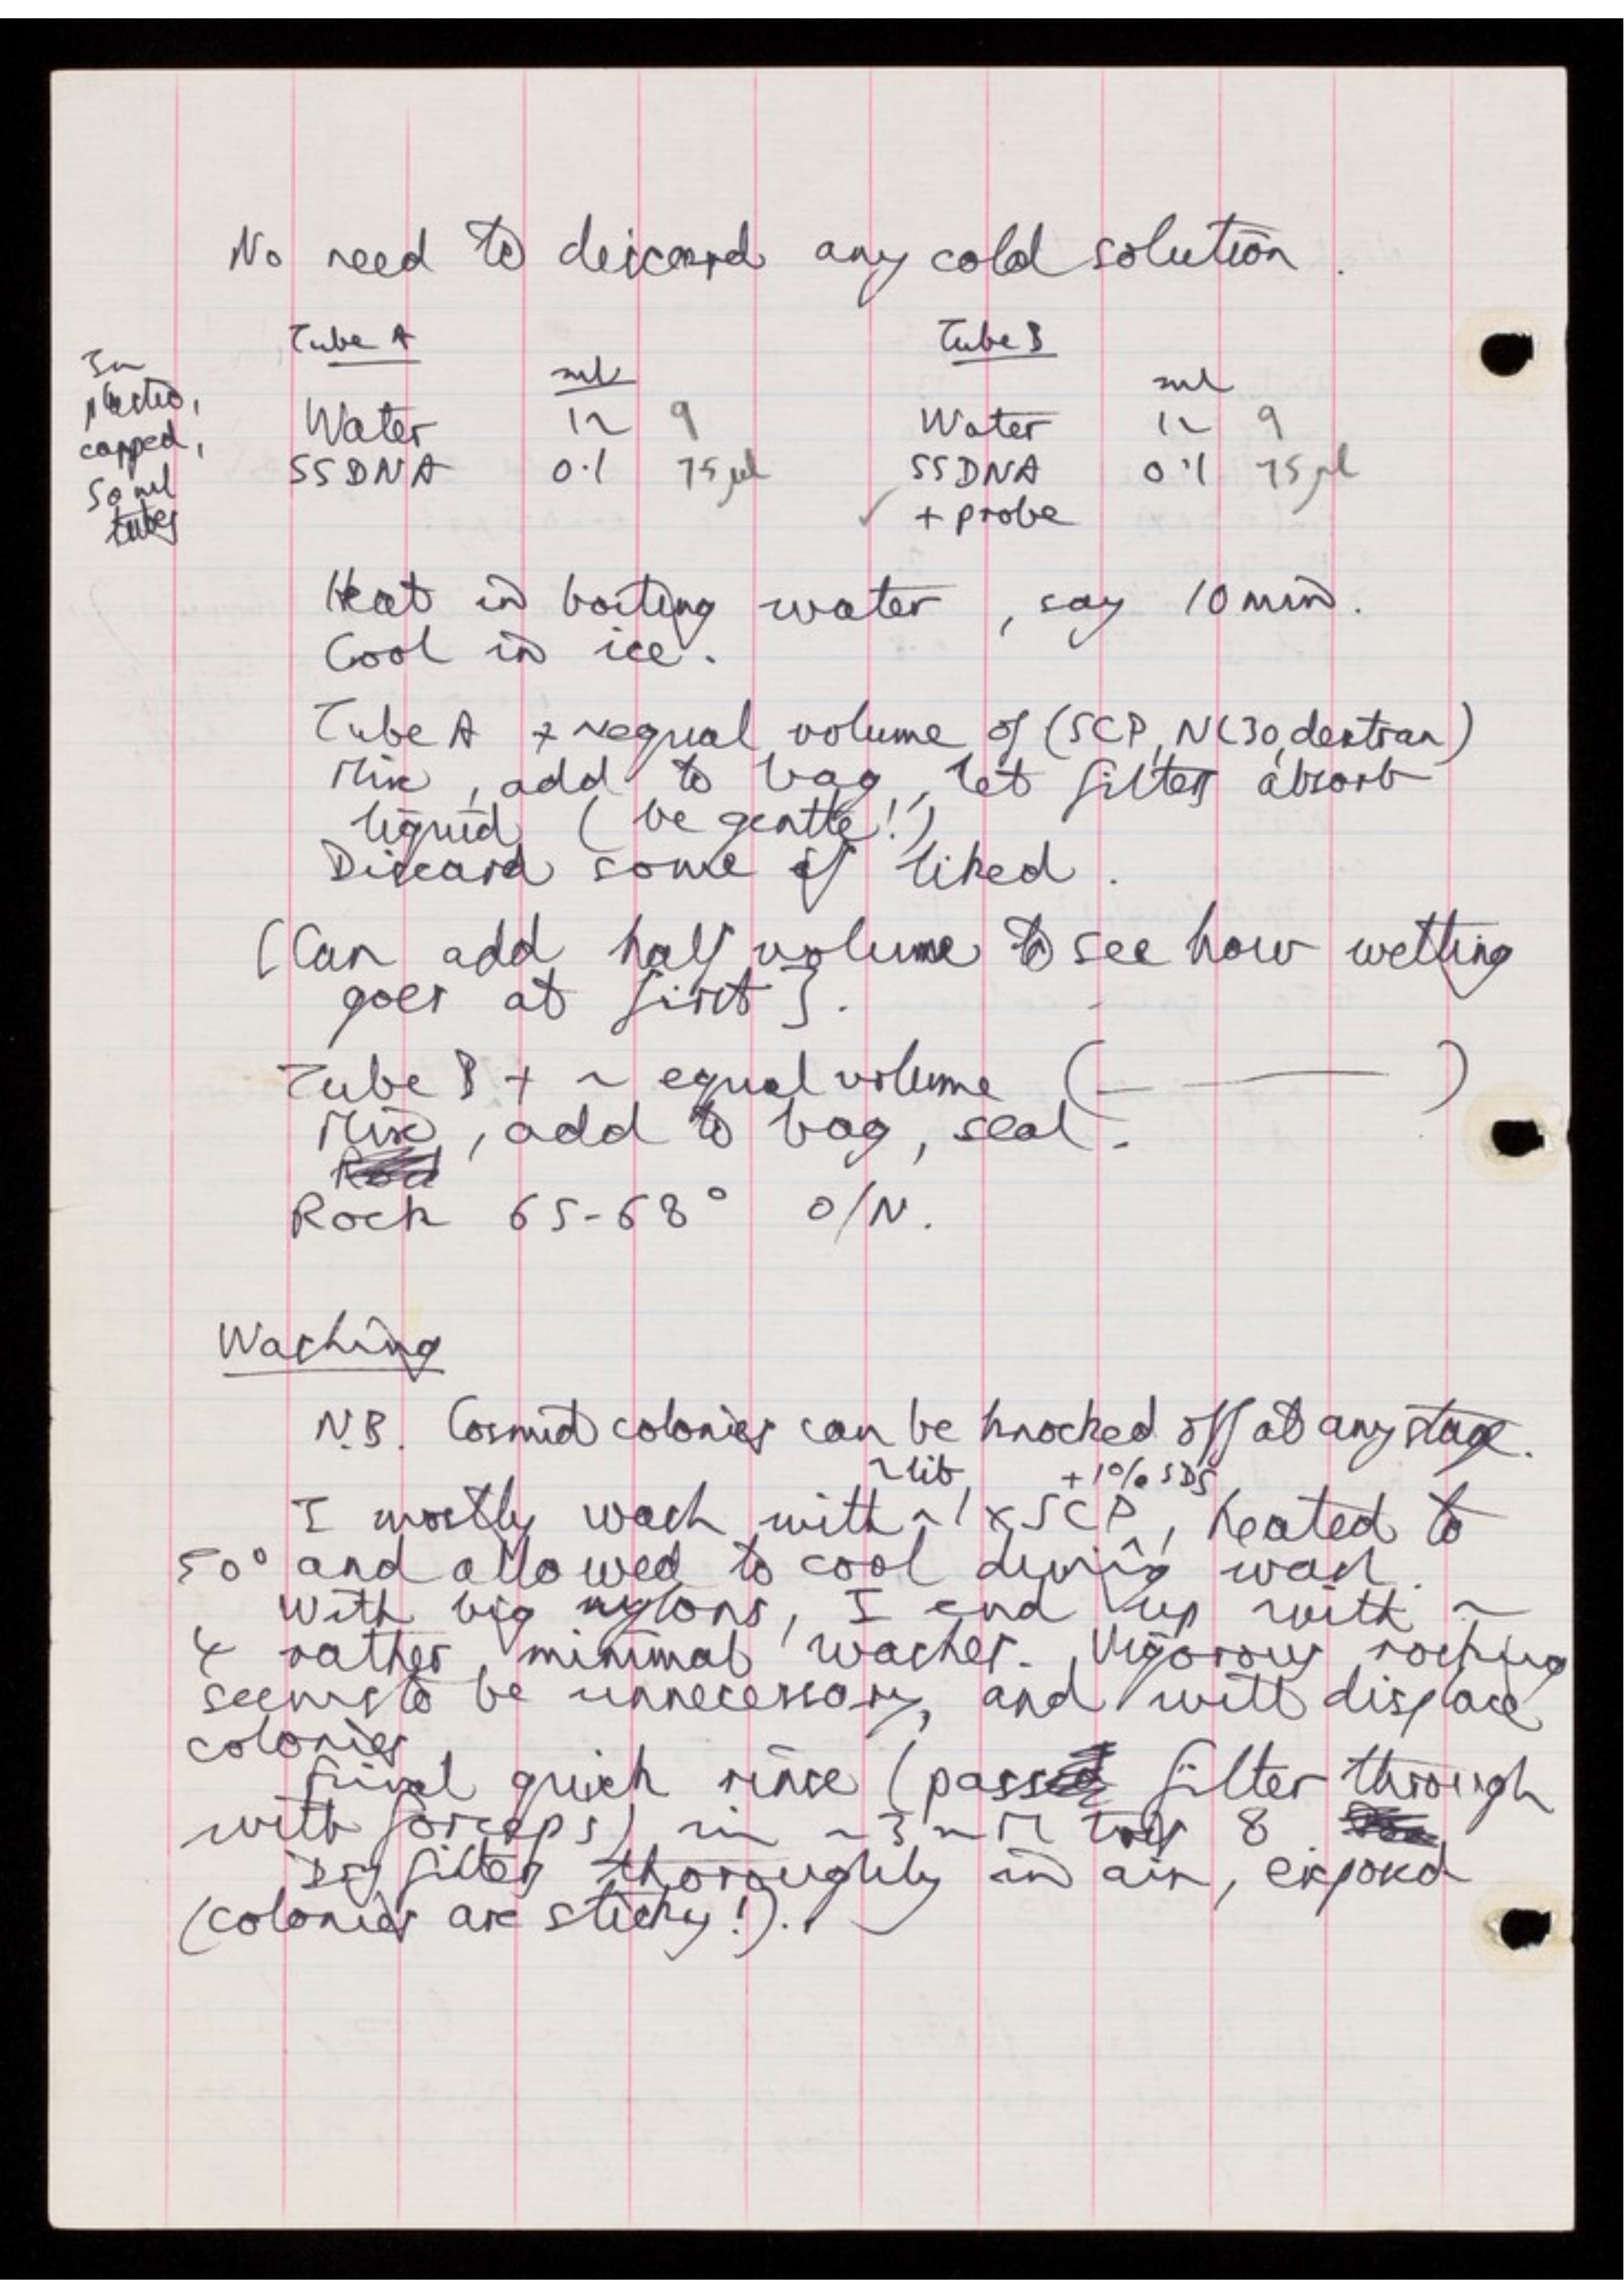 No need to discard any cold solution.
Tube A Tube B
In
plastic,
capped,
50 ml
tubes
ml ml
Water 12 9 Water 12 9
SSDNA 0.1 75 μl SSDNA 0.1 75 μl
✓ + probe
Heat in boiling water, say 10 min.
Cool in ice.
Tube A + ~equal volume of (SCP, NL30, dextran)
Mix, add to bag, let filters absorb
liquid (be gentle!)
Discard some if liked.
[Can add half volume to see how wetting
goes at first].
Tube B + ~ equal volume (— ——— )
Mix, add to bag, seal.
Rock 65-68° O/N.
Washing
N.B. Cosmid colonies can be knocked off at any stage.
~ lit, +1% SDS
I mostly wash with ~1 x SCP, heated to
50° and allowed to cool during wash.
With big nylons, I end up with ~
4 rather minimal washes. Vigorous rocking
seems to be unnecessary, and will displace
colonies
Final quick rinse (pass filter through
with forceps) in ~3 mM tris 8.
Dry filters thoroughly in air, exposed
(colonies are sticky!).